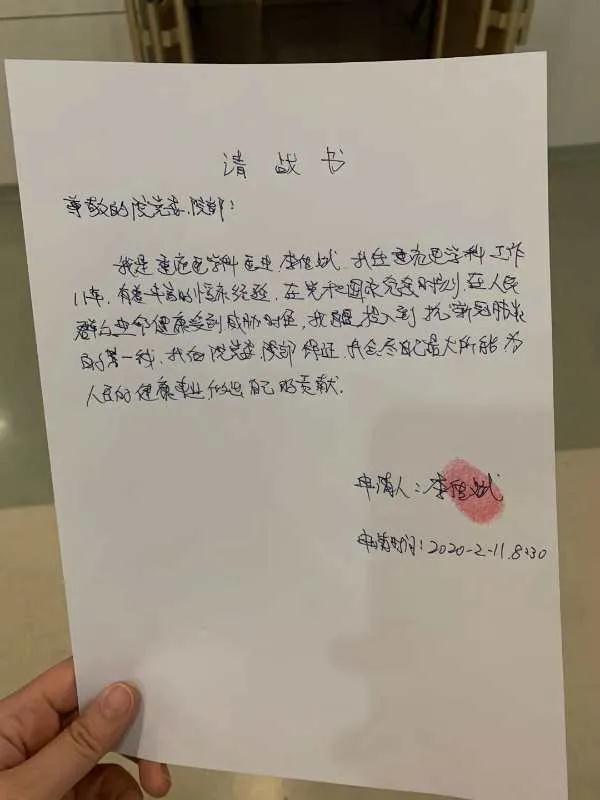 请战书
尊敬的院党委、院部：
我是重症医学科医生 李传斌，我在重症医学科工作
11年，有着丰富的临床经验，在党和国家危难时刻，在人民
群众生命健康受到威胁时候，我愿投入到抗新冠肺炎
的第一线，我向院党委院部保证，我会尽自己最大所能为
人民的健康事业做出自己的贡献.
申请人：李传斌
申请时间：2020-2-11.8:30